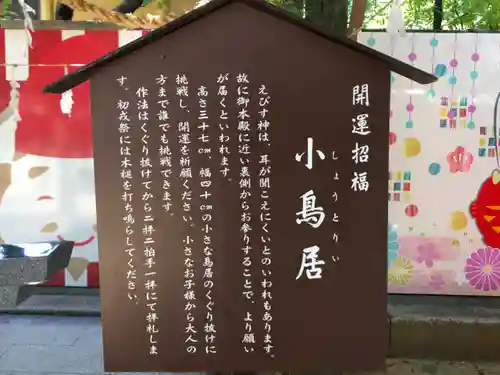 開運招福
小鳥居
しょうとりい
えびす神は、耳が聞こえにくいとのいわれもあります。
故に御本殿に近い裏側からお参りすることで、より願い
が届くといわれます。
高さ三十七cm、幅四十cmの小さな鳥居のくぐり抜けに
挑戦し、開運を祈願ください。小さなお子様から大人の
方まで誰でも挑戦できます。
作法はくぐり抜けてから二拝二拍手一拝にて拝礼しま
す。初戎祭には木槌を打ち鳴らしてください。